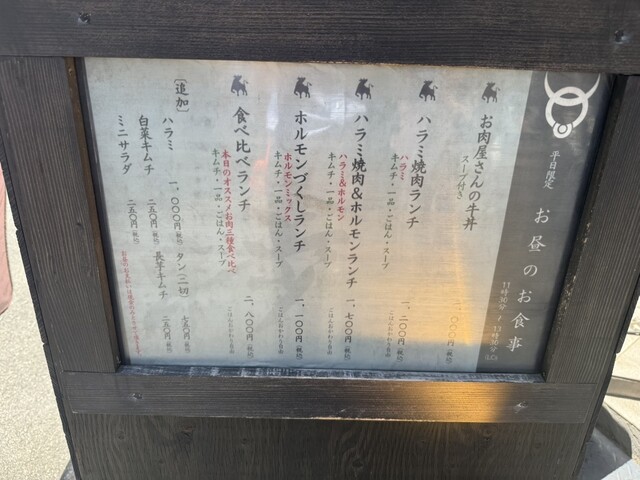 平日限定
お昼のお食事
お肉屋さんの牛丼
スープ付き
ハラミ焼肉ランチ
一、二〇〇円(税込)
ハラミ
キムチ・一品・ごはん・スープ
ごはんおかわり自由
ハラミ焼肉&ホルモンランチ
一、七〇〇円(税込)
ハラミ&ホルモン
キムチ・一品・ごはん・スープ
ごはんおかわり自由
ホルモンづくしランチ
一、一〇〇円(税込)
ホルモンミックス
キムチ・一品・ごはん・スープ
ごはんおかわり自由
食べ比べランチ
二、八〇〇円(税込)
本日のオススメお肉三種食べ比べ
キムチ・一品・ごはん・スープ
ごはんおかわり自由
〔追加〕
ハラミ 一、〇〇〇円(税込)
タン(二切) 七五〇円(税込)
白菜キムチ 二五〇円(税込)
長芋キムチ 二五〇円(税込)
ミニサラダ 二五〇円(税込)